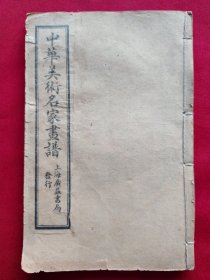 中華美術名家畫譜
上海廣益書局
發行